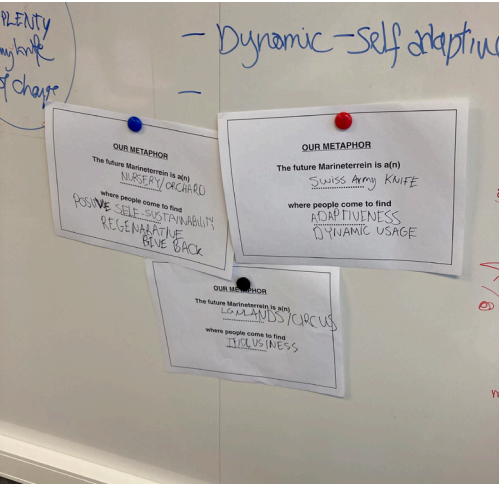 PLENTY
knife
of change
- Dynamic-Self adaptive
-
OUR METAPHOR
The future Marineterrein is a(n)
NURSERY/ORCHARD
where people come to find
POSIVE SELF-SUSTAINABILITY
REGENARATIVE
GIVE BACK
OUR METAPHOR
The future Marineterrein is a(n)
SWISS ARMY KNIFE
where people come to find
ADAPTIVENESS
DYNAMIC USAGE
OUR METAPHOR
The future Marineterrein is a(n)
/CIRCUS
where people come to find